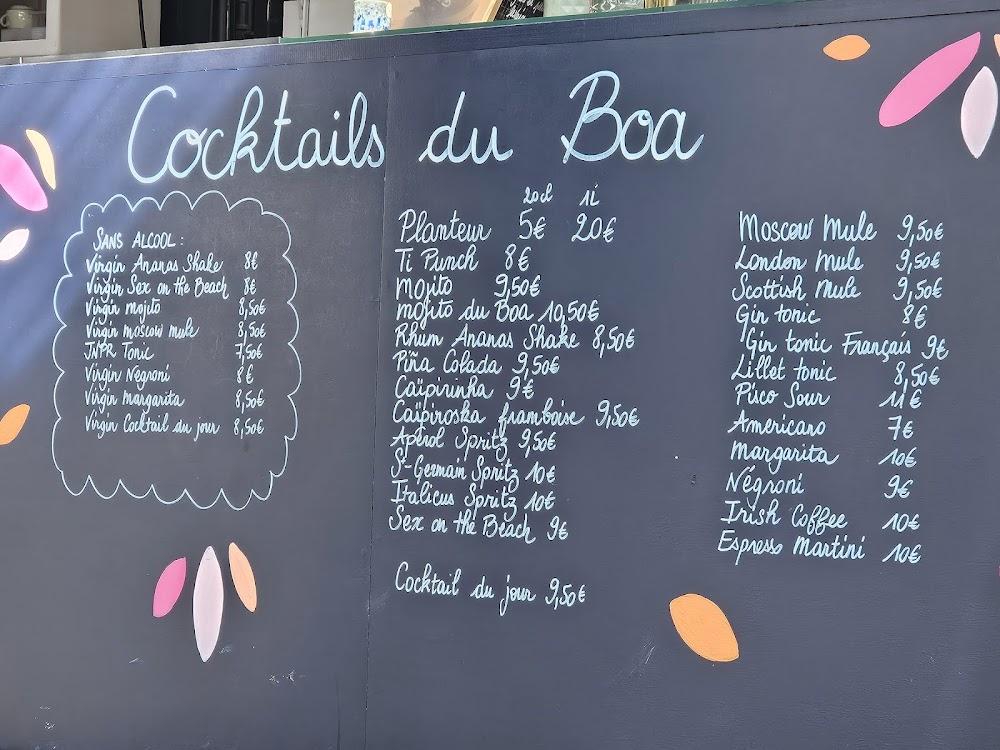 Cocktails du Boa
SANS ALCOOL :
Virgin Ananas Shake 8€
Virgin Sex on the Beach 8€
Virgin mojito 8,50€
Virgin moscow mule 8,50€
JNPR Tonic 7,50€
Virgin Négroni 8€
Virgin margarita 8,50€
Virgin Cocktail du jour 8,50€
20cl 1l
Planteur 5€ 20€
Ti Punch 8€
Mojito 9,50€
mojito du Boa 10,50€
Rhum Ananas Shake 8,50€
Piña Colada 9,50€
Caïpirinha 9€
Caïpiroska framboise 9,50€
Aperol Spritz 9,50€
St-Germain Spritz 10€
Italicus Spritz 10€
Sex on the Beach 9€
Cocktail du jour 9,50€
Moscow Mule 9,50€
London Mule 9,50€
Scottish Mule 9,50€
Gin tonic 8€
Gin tonic Français 9€
Lillet tonic 8,50€
Pisco Sour 11€
Americano 7€
Margarita 10€
Négroni 9€
Irish Coffee 10€
Espresso Martini 10€